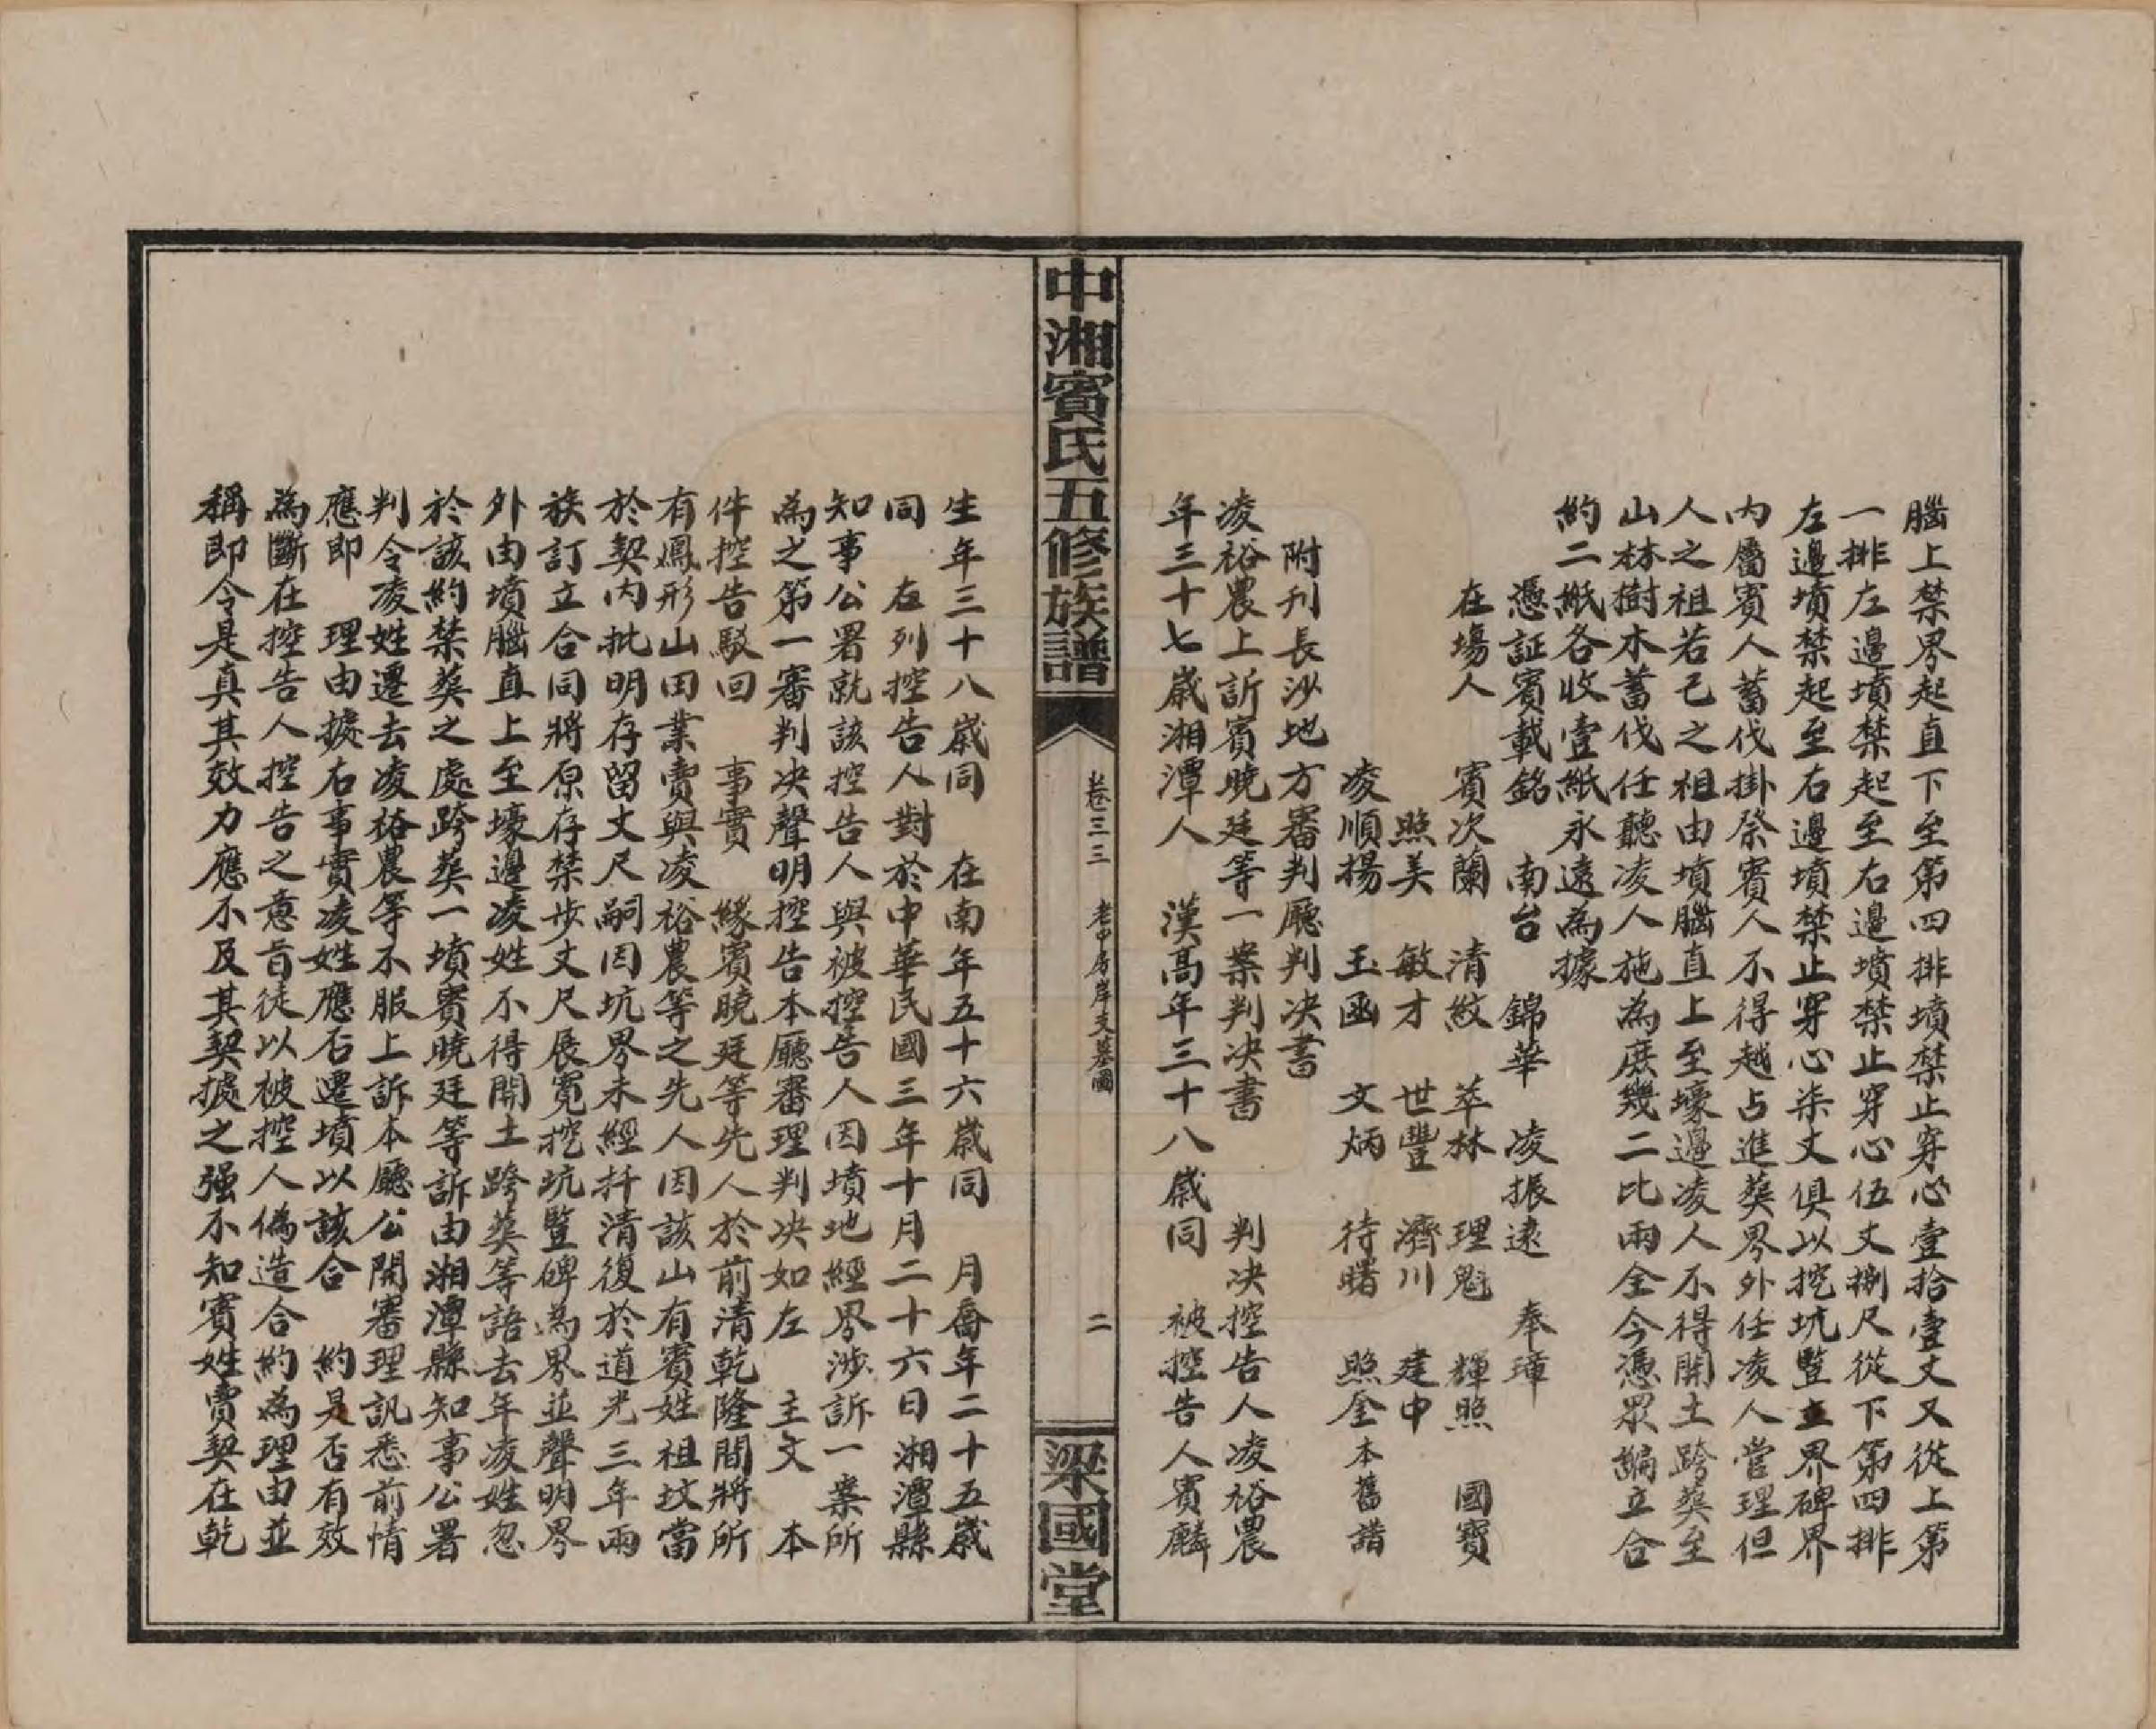 腦上禁界起直下至第四排墳禁止穿心壹拾壹丈又從上第
一排左邊墳禁起至右邊墳禁止穿心伍丈捌尺從下第四排
左邊墳禁起至右邊墳禁止穿心柒丈俱以挖坑豎立界碑界
內屬賓人蓄伐掛祭賓人不得越占進葬界外任凌人管理但
人之祖若己之祖由墳腦直上至壕邊凌人不得開土跨葬至
山林樹木蓄伐任聽凌人施為庶幾二比兩全今憑眾謫立合
約二紙各收壹紙永遠為據
憑証賓載銘　南台　錦華　凌振逮　奉璋
在場人　賓次蘭　清紋　萃林　理魁　輝照　國寶
照美　敏才　世豐　濟川　建中
凌順揚　玉函　文炳　待曙　照奎本舊譜
附刊長沙地方審判廳判決書
凌裕農上訴賓曉廷等一案判决書　判决控告人凌裕農
年三十七歲湘潭人　漢高年三十八歲同　被控告人賓麟
中湘賓氏五修族譜
卷三三　老中房岸支墓圖　二
梁國堂
生年三十八歲同　在南年五十六歲同　月喬年二十五歲
同　右列控告人對於中華民國三年十月二十六日湘潭縣
知事公署就該控告人與被控告人因墳地經界涉訴一案所
為之第一審判决聲明控告本廳審理判决如左　主文　本
件控告駁回　事實　緣賓曉廷等先人於前清乾隆間將所
有鳳形山田業賣與凌裕農等之先人因該山有賓姓祖坟當
於契內批明存留丈尺嗣因坑界未經扦清復於道光三年兩
族訂立合同將原存禁步丈尺展寬挖坑豎碑為界並聲明界
外由墳腦直上至壕邊凌姓不得開土跨葬等語去年凌姓忽
於該約禁葬之處跨葬一墳賓曉廷等訴由湘潭縣知事公署
判令凌姓遷去凌裕農等不服上訴本廳公開審理訊悉前情
應即　理由據右事實凌姓應否遷墳以該合　約是否有效
為斷在控告人控告之意旨徒以被控人偽造合約為理由並
稱即令是真其效力應不及其契據之强不知賓姓賣契在乾